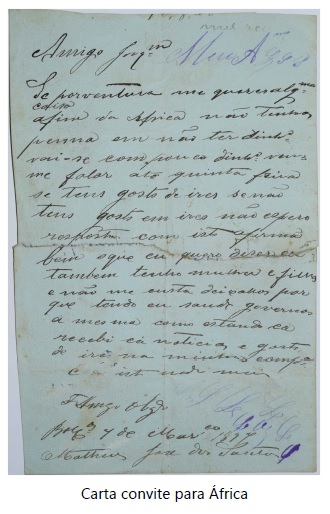 Amigo Joaqm Meu A
Se porventura me queres alguma
coisa
afim da Africa não tenhas
penna em não ter dinhº
vai-se com pouco dinhº vem
me falar até quinta feira
se teus gosto de ires se não
teus gosto em ires não espero
resposta com isto afirma
bem o que eu quero diser eu
tambem tenho mulher e filhos
e não me custa deixalos por
que tendo eu saude governos
a mesma como estando cá
recebi cá noticias e gosto
de irs na minha compª
e isto nada mais
Amgo Obgo
7 de Março
Matheus José dos Santos
Carta convite para África